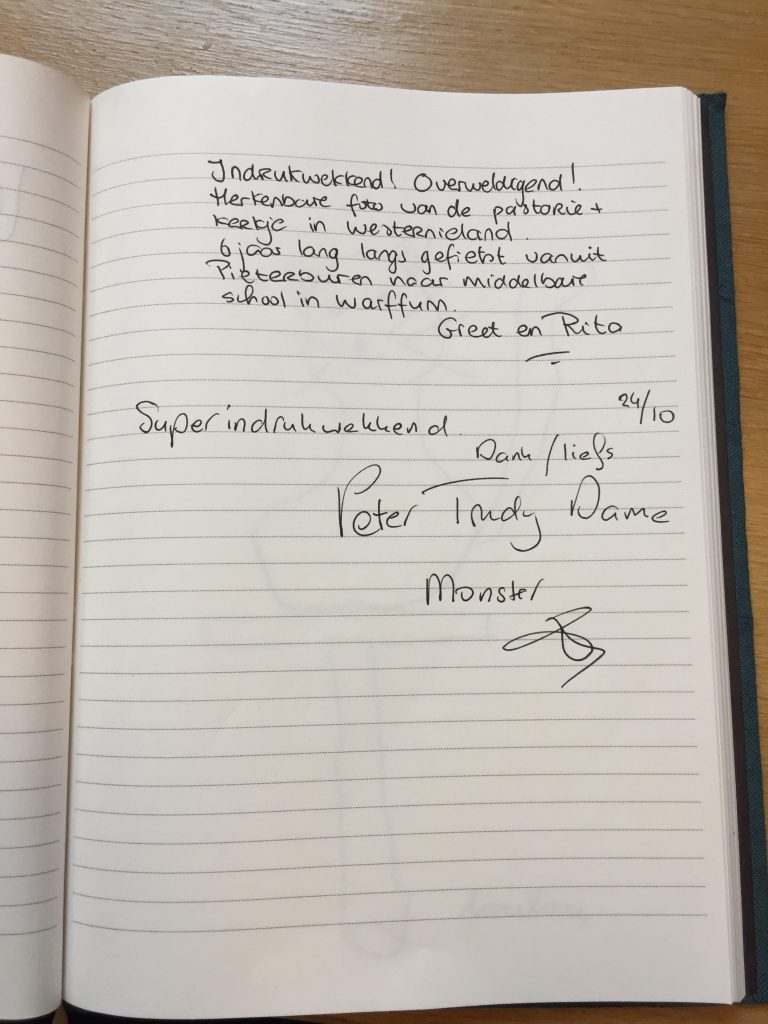 Indrukwekkend! Overweldigend!
Herkenbare foto van de pastorie +
kerkje in Westernieland.
6 jaar lang langs gefietst vanuit
Pieterburen naar middelbare
school in Warffum.
Greet en Rita
24/10
Superindrukwekkend.
Dank / liefs
Peter Trudy Dame
Monster